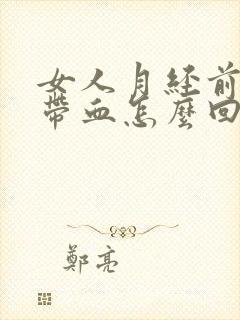 女人月经前
带血怎麼回
鄭亮